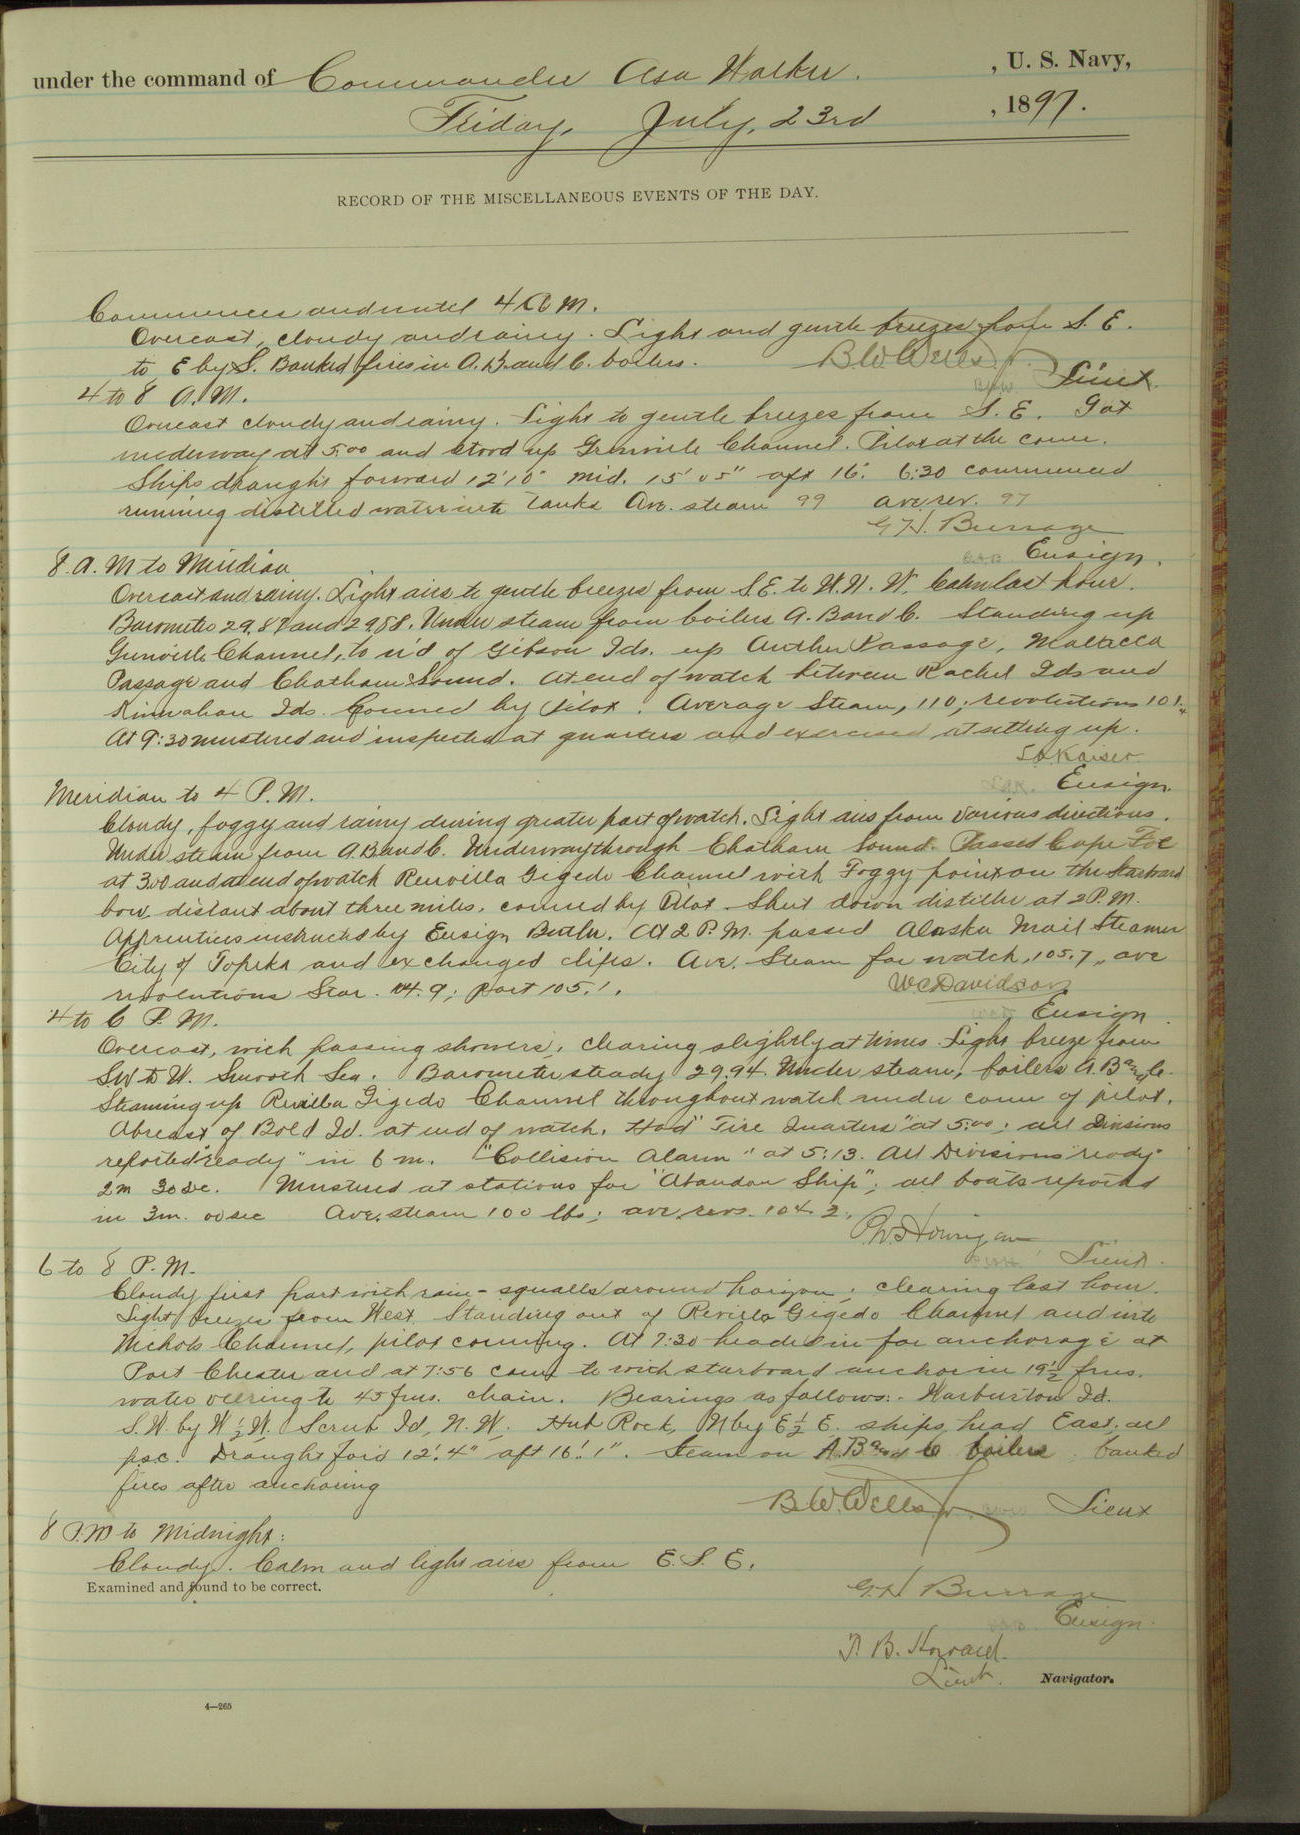 under the command of Commander Asa Walker. , U. S. Navy,
Friday, July, 23rd , 1897.
RECORD OF THE MISCELLANEOUS EVENTS OF THE DAY.
Commences and until 4 A M.
Overcast, cloudy and rainy. Light and gentle breezes from S. E.
to E by S. Banked fires in A. B. and C. boilers. B W Wells Jr.
Lieut.
4 to 8 A. M.
Overcast cloudy and rainy. Light to gentle breezes from S. E. Got
underway at 5.00 and stood up Grenville Channel. Pilot at the conn.
Ships draught forward 12' 10" mid. 15' 05" aft 16'. 6:30 commenced
running distilled water into tanks Ave. steam 99 ave. rev. 97
G H. Burrage
Ensign.
8. A. M to Meridian
Overcast and rainy. Light airs to gentle breezes from S E. to W. N. W. Calm last hour.
Barometer 29.87 and 29.88. Under steam from boilers A. B and C. Standing up
Grenville Channel, to n'd of Gibson Ids. up Arthur Passage, Malacca
Passage and Chatham Sound. At end of watch between Rachel Ids and
Kinnahan Ids. Conned by Pilot. Average Steam, 110; revolutions 101.
At 9:30 mustered and inspected at quarters and exercised at setting up.
L A Kaiser
Ensign.
Meridian to 4 P. M.
Cloudy, foggy and rainy during greater part of watch. Light airs from various directions.
Under steam from A. B and C. Underway through Chatham Sound. Passed Cape Fox
at 3.00 and at end of watch Revilla Gigedo Channel with Foggy point on the starboard
bow distant about three miles, conned by Pilot. Shut down distiller at 2 P. M.
Apprentices instructed by Ensign Butler. At 2 P. M. passed Alaska Mail Steamer
City of Topeka and exchanged dips. Ave. Steam for watch, 105.7, ave
revolutions Star. 104.9; port 105.1. W C Davidson
Ensign
4 to 6 P. M.
Overcast, with passing showers, clearing slightly at times. Light breeze from
SW to W. Smooth Sea. Barometer steady 29.94. Under steam, boilers A. B and C.
Steaming up Revilla Gigedo Channel throughout watch under conn of pilot.
Abreast of Bold Id. at end of watch. Had "Fire Quarters" at 5.00; all Divisions
reported "ready" in 6 m. "Collision Alarm" at 5:13. All Divisions "ready"
2m 30sec. Mustered at stations for "Abandon Ship"; all boats reported
in 3m. 00 sec Ave. steam 100 lbs; ave. revs. 104.2.
P W Hourigan
Lieut.
6 to 8 P. M.
Cloudy first part with rain-squalls around horizon; clearing last hour.
Light breezes from West. Standing out of Revilla Gigedo Channel and into
Nichols Channel, pilot conning. At 7:30 headed in for anchorage at
Port Chester and at 7:56 came to with starboard anchor in 19½ fms.
water veering to 45 fms. chain. Bearings as follows:- Warburton Id.
S. W. by W ½ W. Scrub Id, N. W. Hub Rock, N by E ½ E. ships head East; all
p.s.c. Draught for'd 12'. 4" aft 16'. 1". Steam on A. B and C boilers. banked
fires after anchoring
B. W. Wells Jr. Lieut
8 P. M to Midnight:
Cloudy. Calm and light airs from E. S. E.
Examined and found to be correct.
G. H Burrage
Ensign.
T. B. Howard.
Lieut. Navigator.
4—265